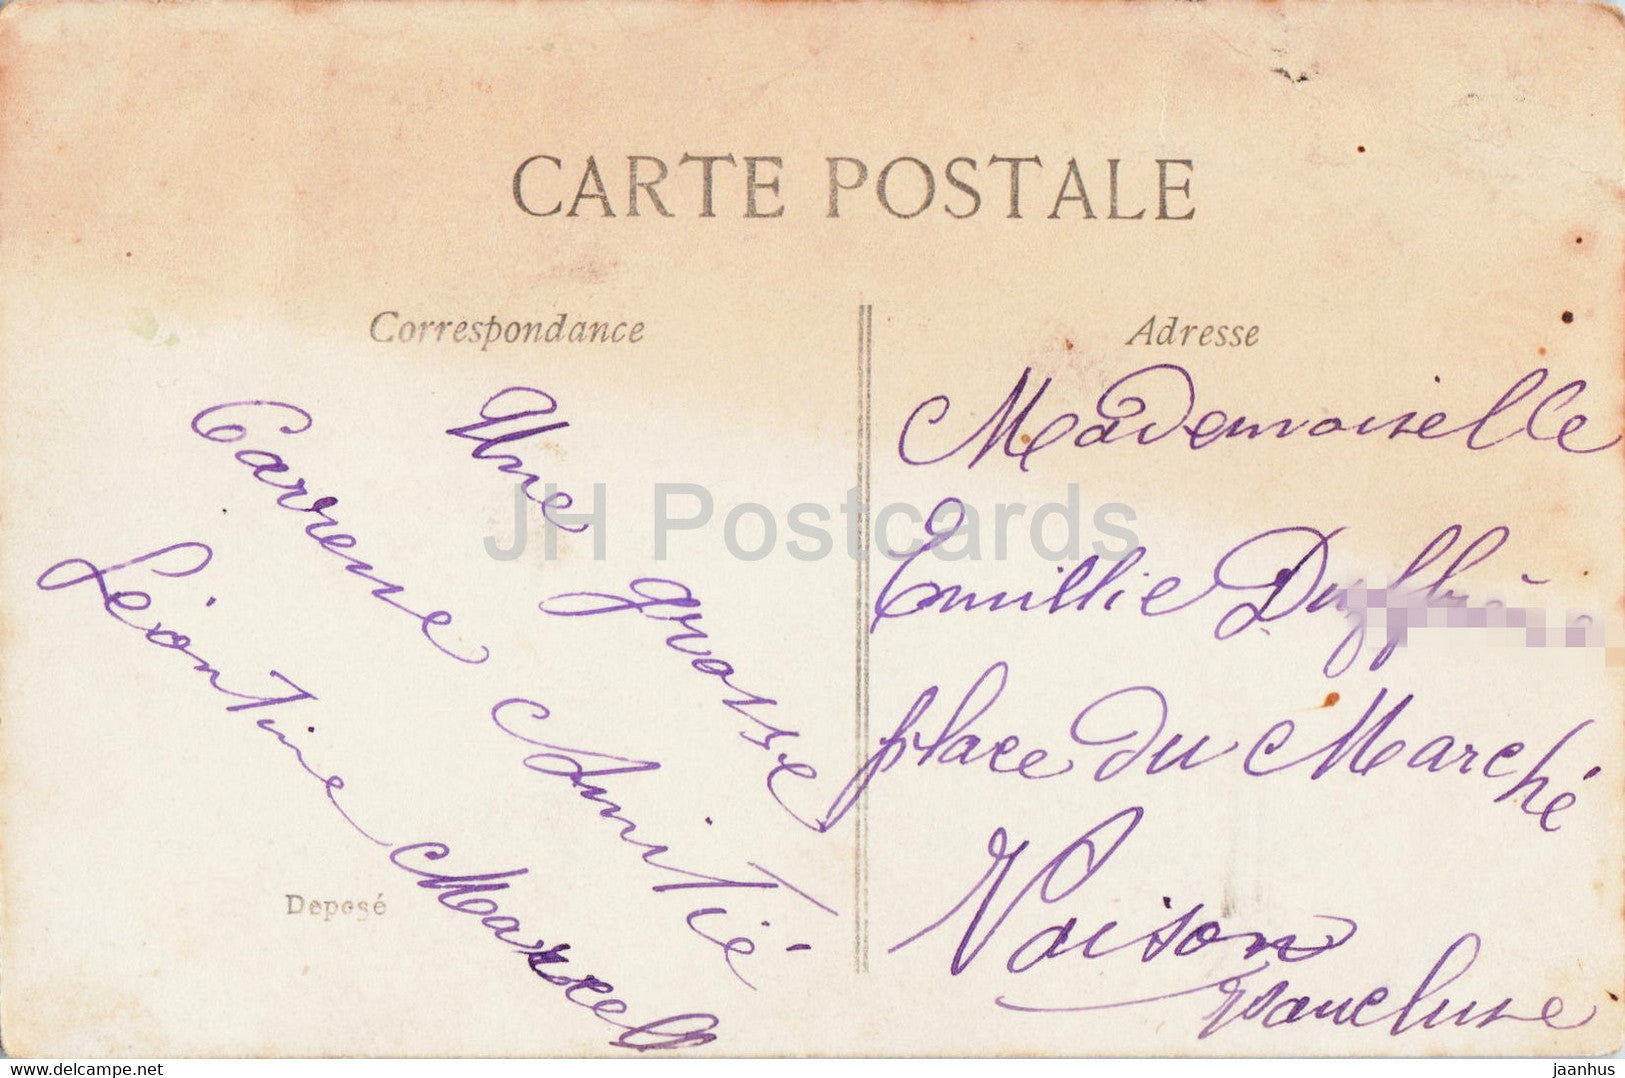 CARTE POSTALE
Correspondance
Une grosse
Carresse Amitié
Léontine Marcell
Deposé
Adresse
Mademoiselle
Emillie
place du Marché
Vaison
Vaucluse
JH Postcards
www.delcampe.net
jaanhus